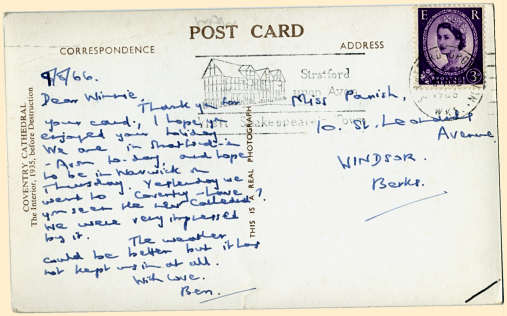 POST CARD
CORRESPONDENCE
ADDRESS
E R
3D
Stratford
upon Avon
Shakespeare's Town
COVENTRY CATHEDRAL
The Interior, 1935, before Destruction
THIS IS A REAL PHOTOGRAPH
9/8/66.
Dear Winnie,
Thank you for
your card; I hope you
enjoyed your holiday
We are in Stratford-u
-Avon to-day, and hope
to be in Warwick on
Thursday. Yesterday we
went to Coventry - have
you seen the new Cathedral?
We were very impressed
by it. The weather
could be better but it has
not kept us in at all.
With love,
Ben.
Miss Parish,
10. St. Leonards
Avenue
WINDSOR.
Berks.